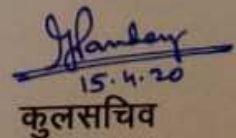 15.4.20
कुलसचिव